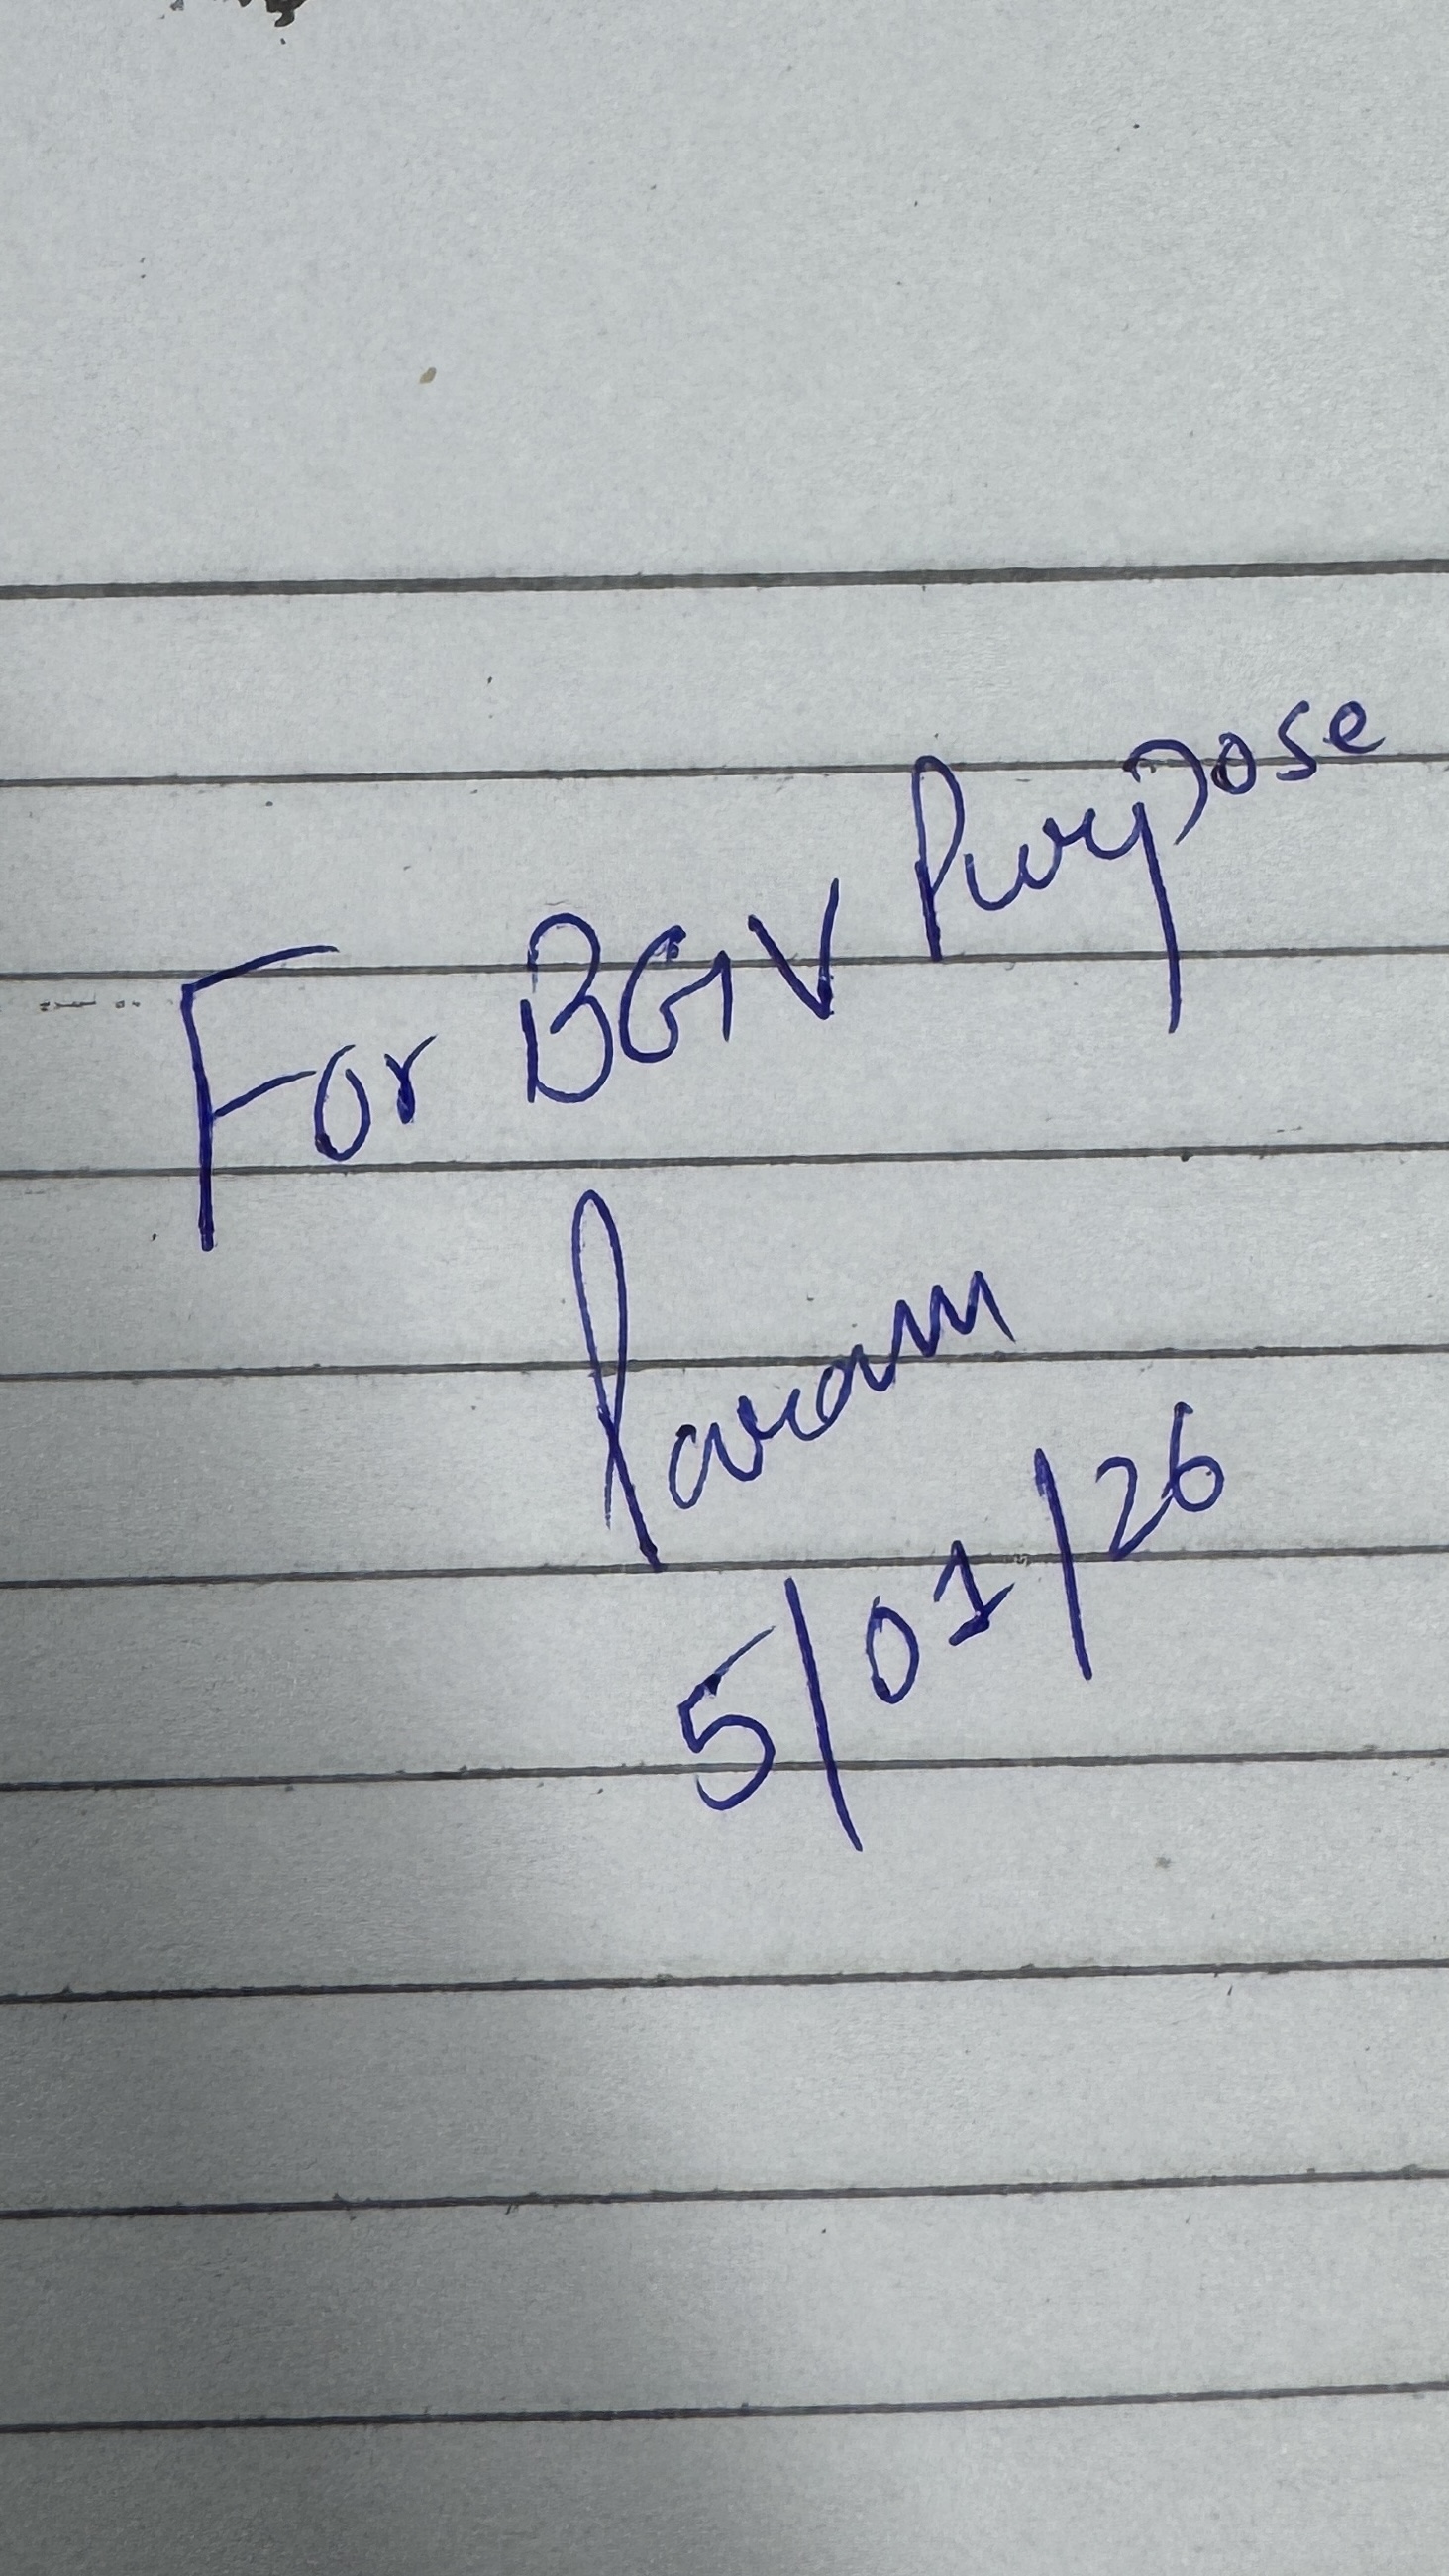 For BGV Purpose
Param
5/01/26